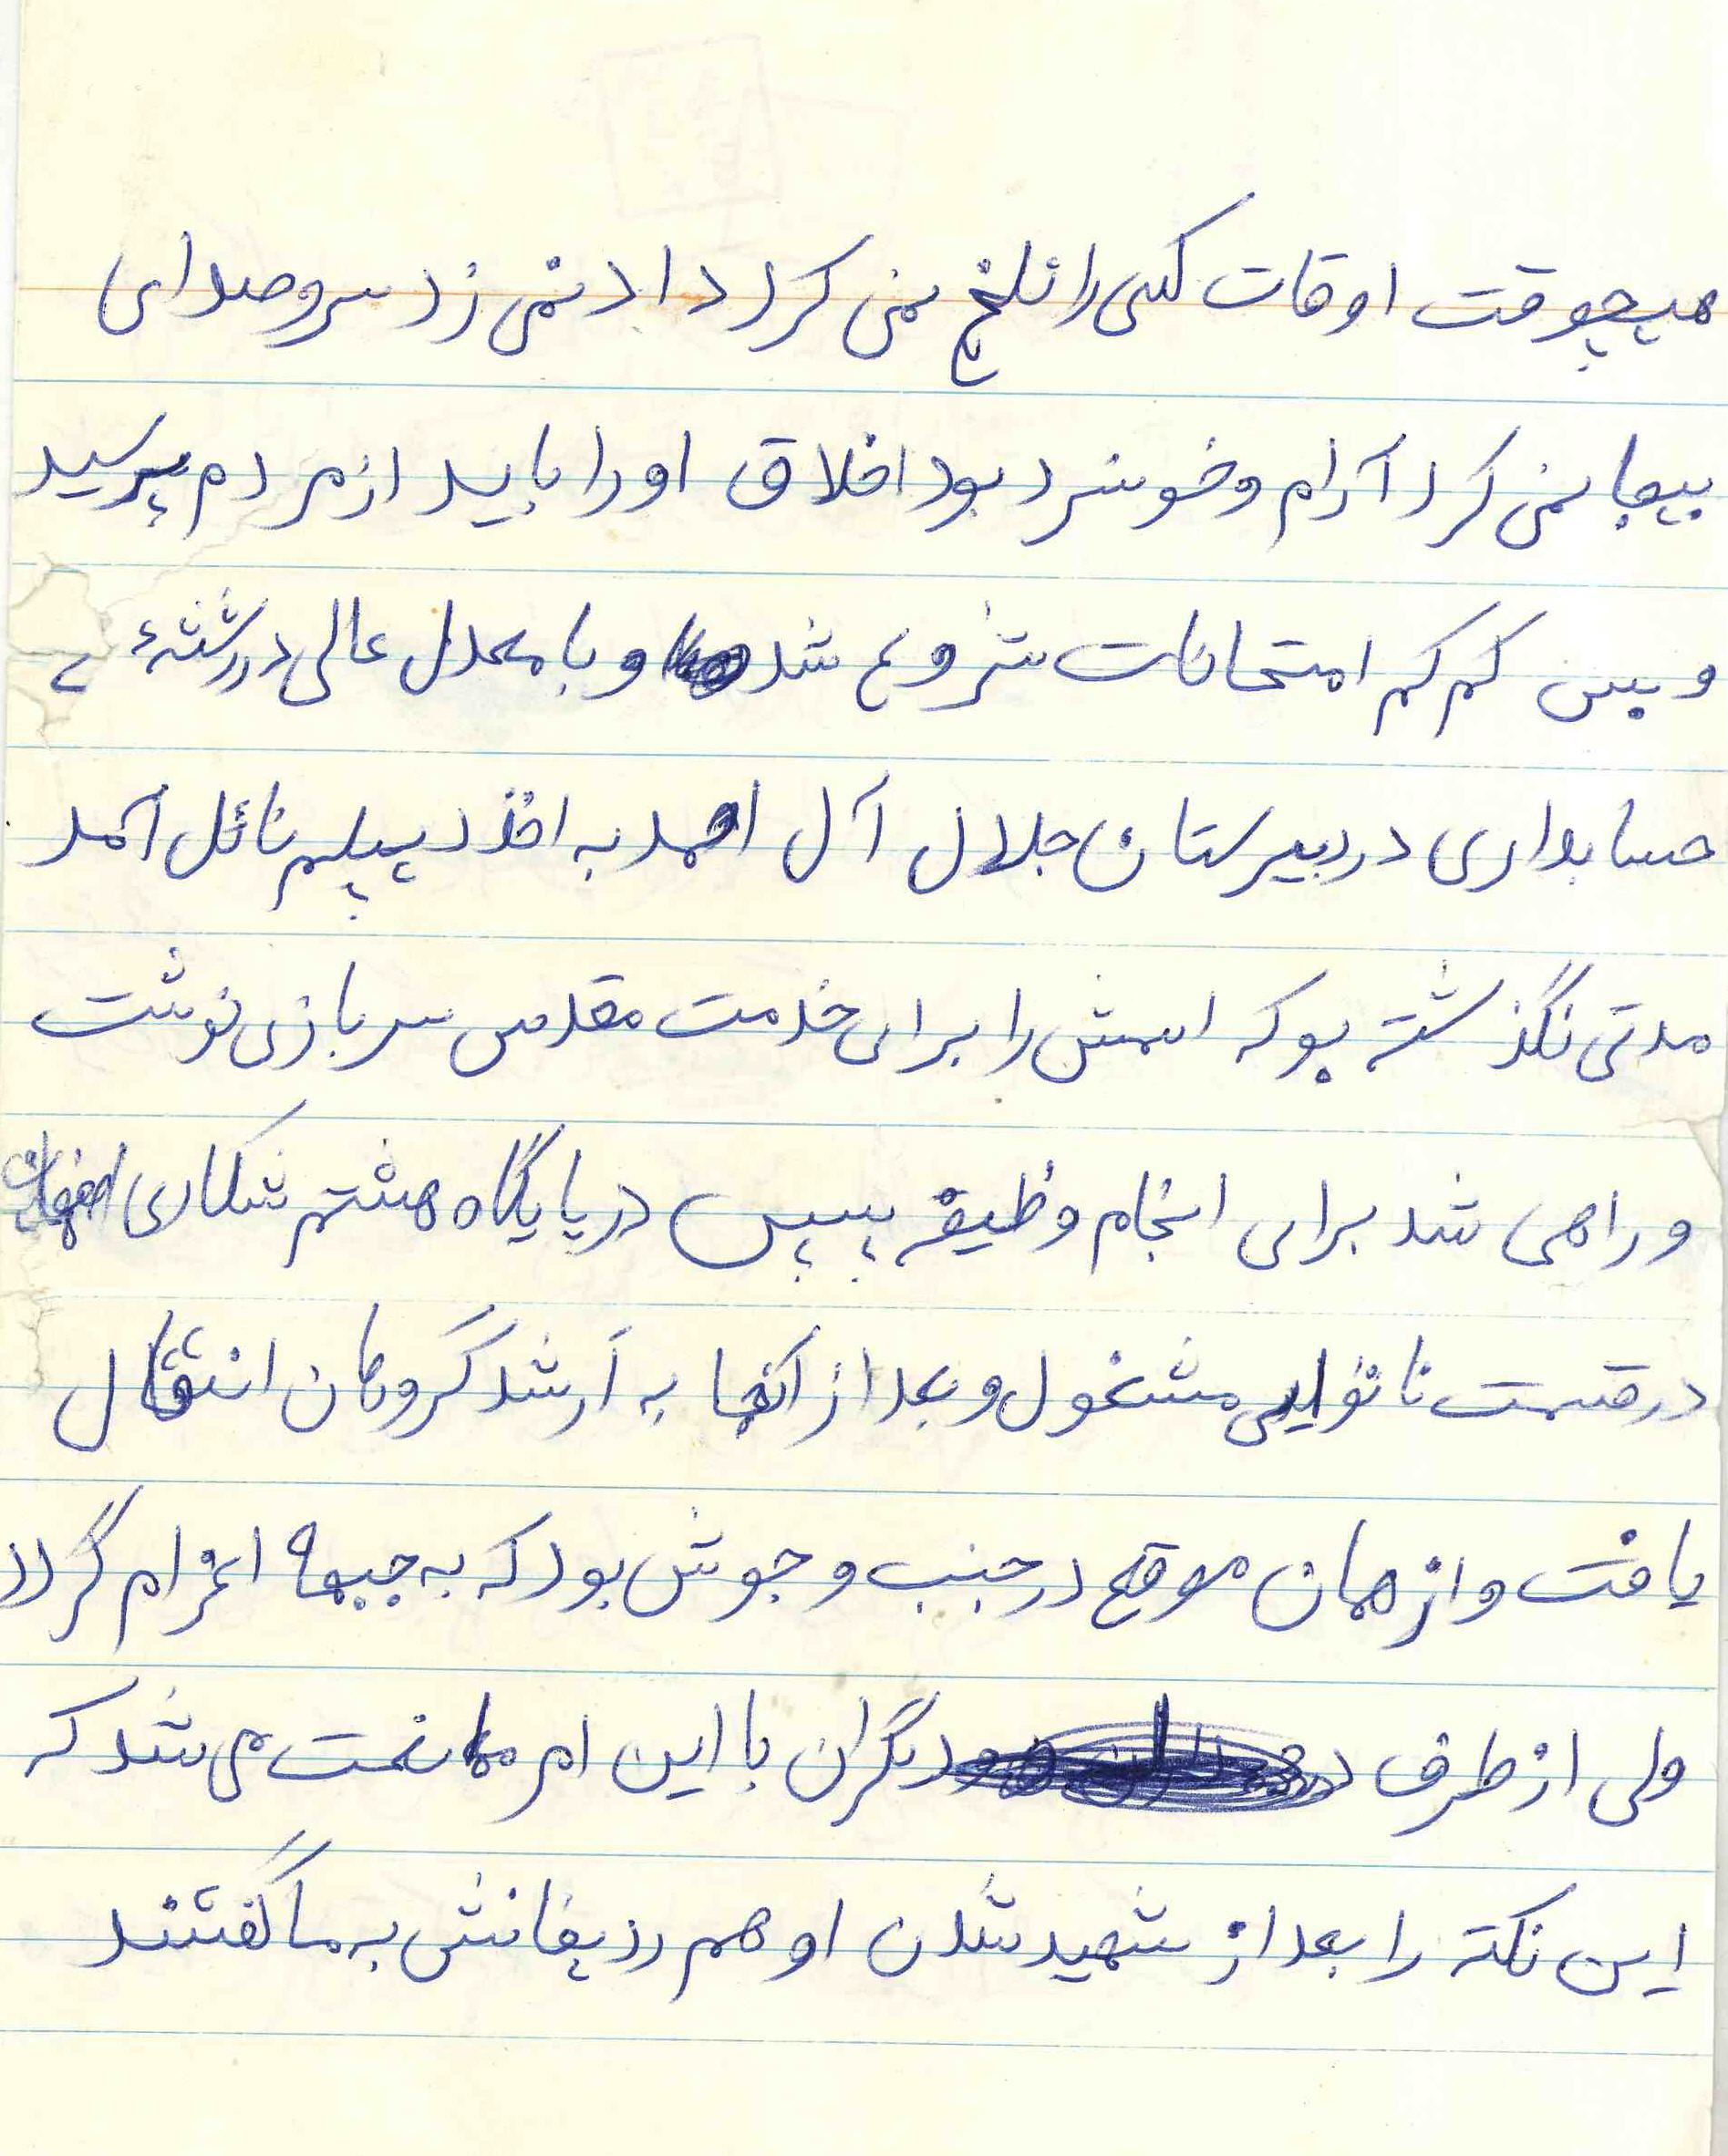 هیچوقت اوقات کسی را تلخ نمی کرد داد نمی زد سر و صدای
بیجا نمی کرد آرام و خونسرد بود اخلاق او را باید از مردم پرسید
و پس کم کم امتحانات شروع شد و با معدل عالی در رشتهٔ
حسابداری در دبیرستان جلال آل احمد به اخذ دیپلم نائل آمد
مدتی نگذشته بو که اسمش را برای خدمت مقدس سربازی نوشت
و راهی شد برای انجام وظیفه سپس در پایگاه هشتم شکاری اصفهان
در قسمت نانوایی مشغول و بعد از آنجا به آرشد گروهان انتقال
یافت و از همان موقع در جنب و جوش بود که به جبهه اعزام گردد
ولی از طرف دیگران با این امر ممانعت می شد که
این نکته را بعد از شهید شدن او هم ردیفانش به ما گفتند